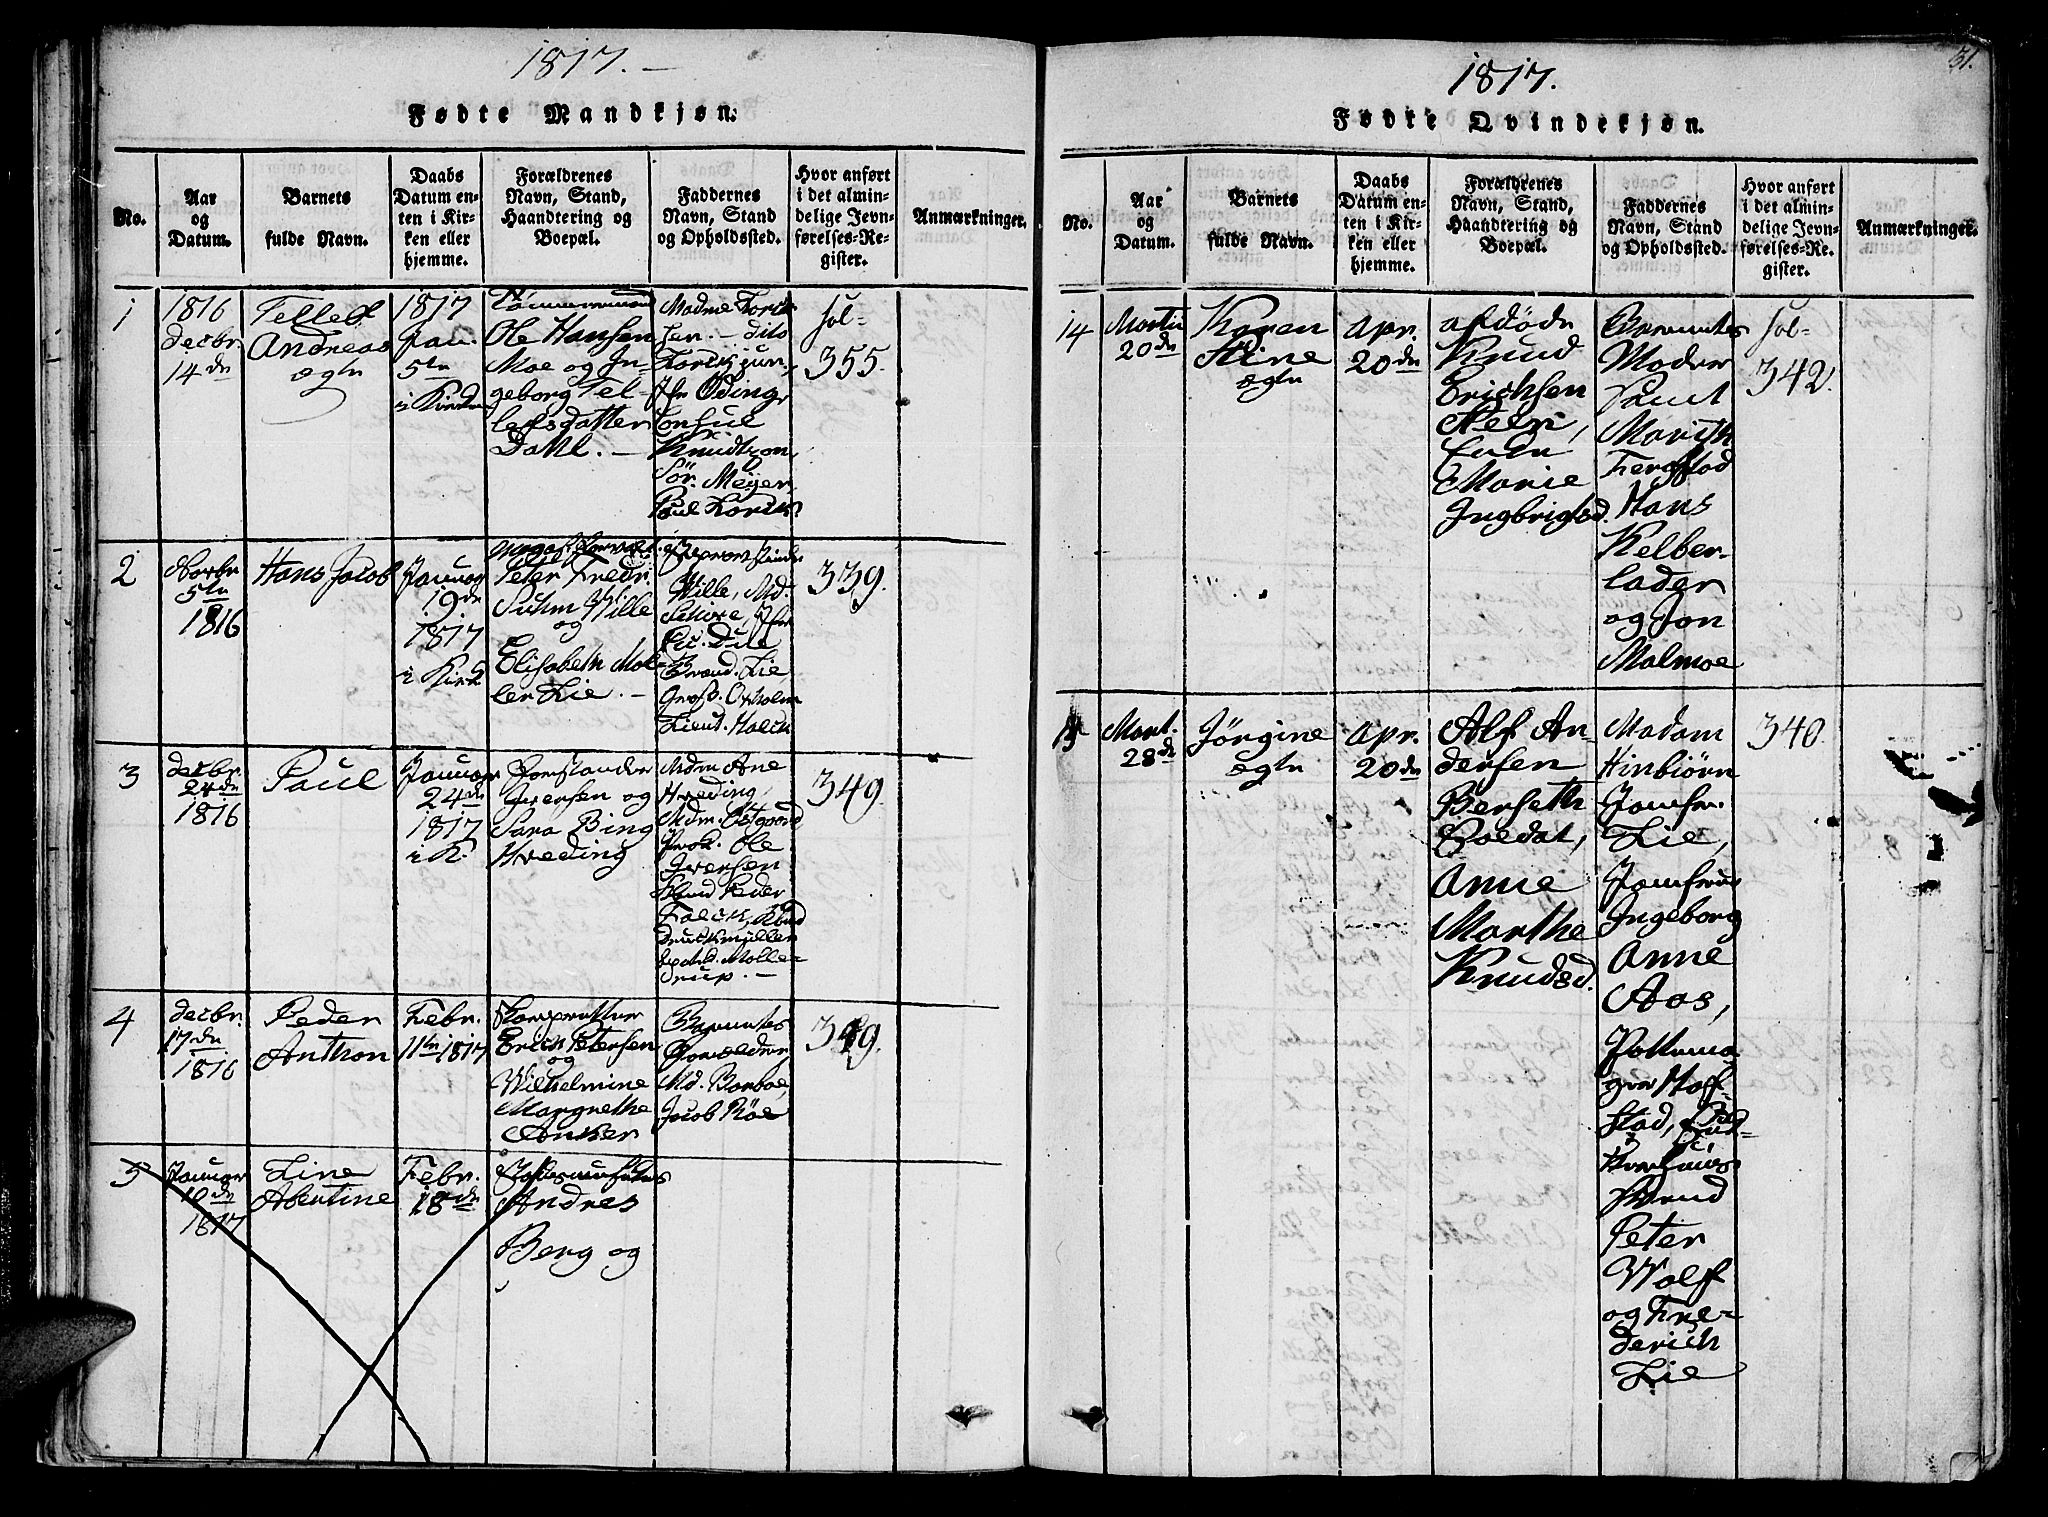 1817. —
Fødte Mandkjøn.
No.
Aar
og
Datum.
Barnets
fulde Navn.
Daabs
Datum en-
ten i Kir-
ken eller
hjemme.
Forældrenes
Navn, Stand,
Haandtering og
Boepæl.
Faddernes
Navn, Stand
og Opholdssted.
Hvor anført
i det almin-
delige Jevn-
førelses-Re-
gister.
Anmærkninger.
1
1816
Decbr.
14de
Tellef
Andreas
ægte
1817
Jan.
5te
i Kirken
Tömmermand
Ole Hansen
Moe og In-
geborg Tel-
lefsdatter
Dahl. —
fol-
355.
Consul
Knudtzon,
Sör. Meyer,
2
5te
1816
Hans Jacob
Januar
19de
1817
i Kirk
Peter Fredr.
Suhm Wille
og
Elisabeth Mol-
ler Lie. —
Wille, Md.
Lieut. Holck
339.
3
Decbr.
24de
1816
Paul
Januar
24de
1817
i K.
Forstander
Iversen og
Sara Bing
Hveding
Mdm Ane
Hveding,
Prok. Ole
Iversen
Molle-
rup. —
349.
4
Decbr.
17de
1816
Peder
Anthon
Febr.
11te 1817
Erich Petersen
og
Wilhelmine
Margrethe
Anker
Barnets
Forældre
Jacob Röe
349.
5
Januar
10de
1817
Line
Abentine
Febr.
18de
Andres
Berg og
31.
1817.
Fødte Qvindekjøn.
No.
Aar
og
Datum.
Barnets
fulde Navn.
Daabs
Datum en-
ten i Kir-
ken eller
hjemme.
Forældrenes
Navn, Stand,
Haandtering og
Boepæl.
Faddernes
Navn, Stand
og Opholdssted.
Hvor anført
i det almin-
delige Jevn-
førelses-Re-
gister.
Anmærkninger.
14
Martii
20de
Karen
Stine
ægte
Apr.
20de
afdöde
Knud
Erichsen
Enke
Marie
Ingbrigtsd.
Barnets
Moder
Samt
Marith
Hans
Kelber-
lader
og Jon
Malmoe
fol-
342.
15
Mart.
28de
Jörgine
ægte
Apr.
20de
Alf An-
dersen
Berseth
Soldat,
Anne
Marthe
Knudsd.
Madam
Hinbiörn
Jomfr.
Lie,
Jomfrue
Ingeborg
Anne
Aas,
Peter
Wolf
og Fre-
derich
Lie
340.